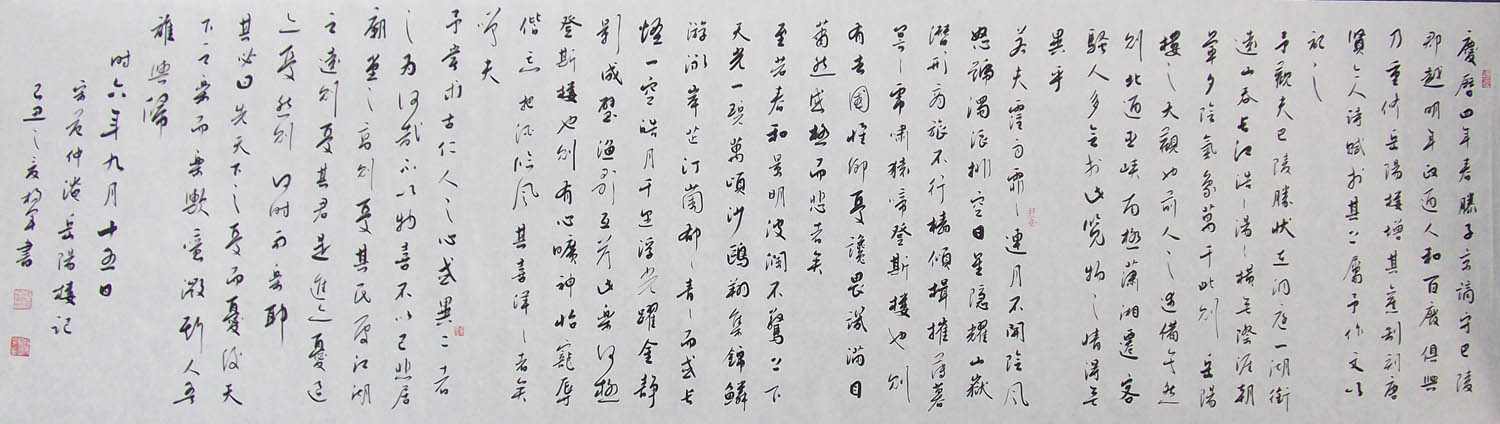 慶曆四年春滕子京謫守巴陵
郡越明年政通人和百廢俱興
乃重修岳陽樓增其舊制刻唐
賢今人詩賦於其上屬予作文以
記之
予觀夫巴陵勝狀在洞庭一湖銜
遠山吞長江浩〻湯〻橫無際涯朝
暉夕陰氣象萬千此則岳陽
樓之大觀也前人之述備矣然
則北通巫峽南極瀟湘遷客
騷人多會於此覽物之情得無
異乎
若夫霪雨霏〻連月不開陰風
怒號濁浪排空日星隱耀山嶽
潛形商旅不行檣傾楫摧薄暮
冥〻虎嘯猿啼登斯樓也則
有去國懷鄉憂讒畏譏滿目
蕭然感極而悲者矣
至若春和景明波瀾不驚上下
天光一碧萬頃沙鷗翔集錦鱗
游泳岸芷汀蘭郁〻青〻而或長
煙一空皓月千里浮光躍金靜
影沉璧漁歌互答此樂何極
登斯樓也則有心曠神怡寵辱
偕忘把酒臨風其喜洋〻者矣
嗟夫
予嘗求古仁人之心或異二者
之為何哉不以物喜不以己悲居
廟堂之高則憂其民處江湖
之遠則憂其君是進亦憂退
亦憂然則何時而樂耶
其必曰先天下之憂而憂後天
下之樂而樂歟噫微斯人吾
誰與歸
時六年九月十五日
宋范仲淹岳陽樓記
己丑之夏書